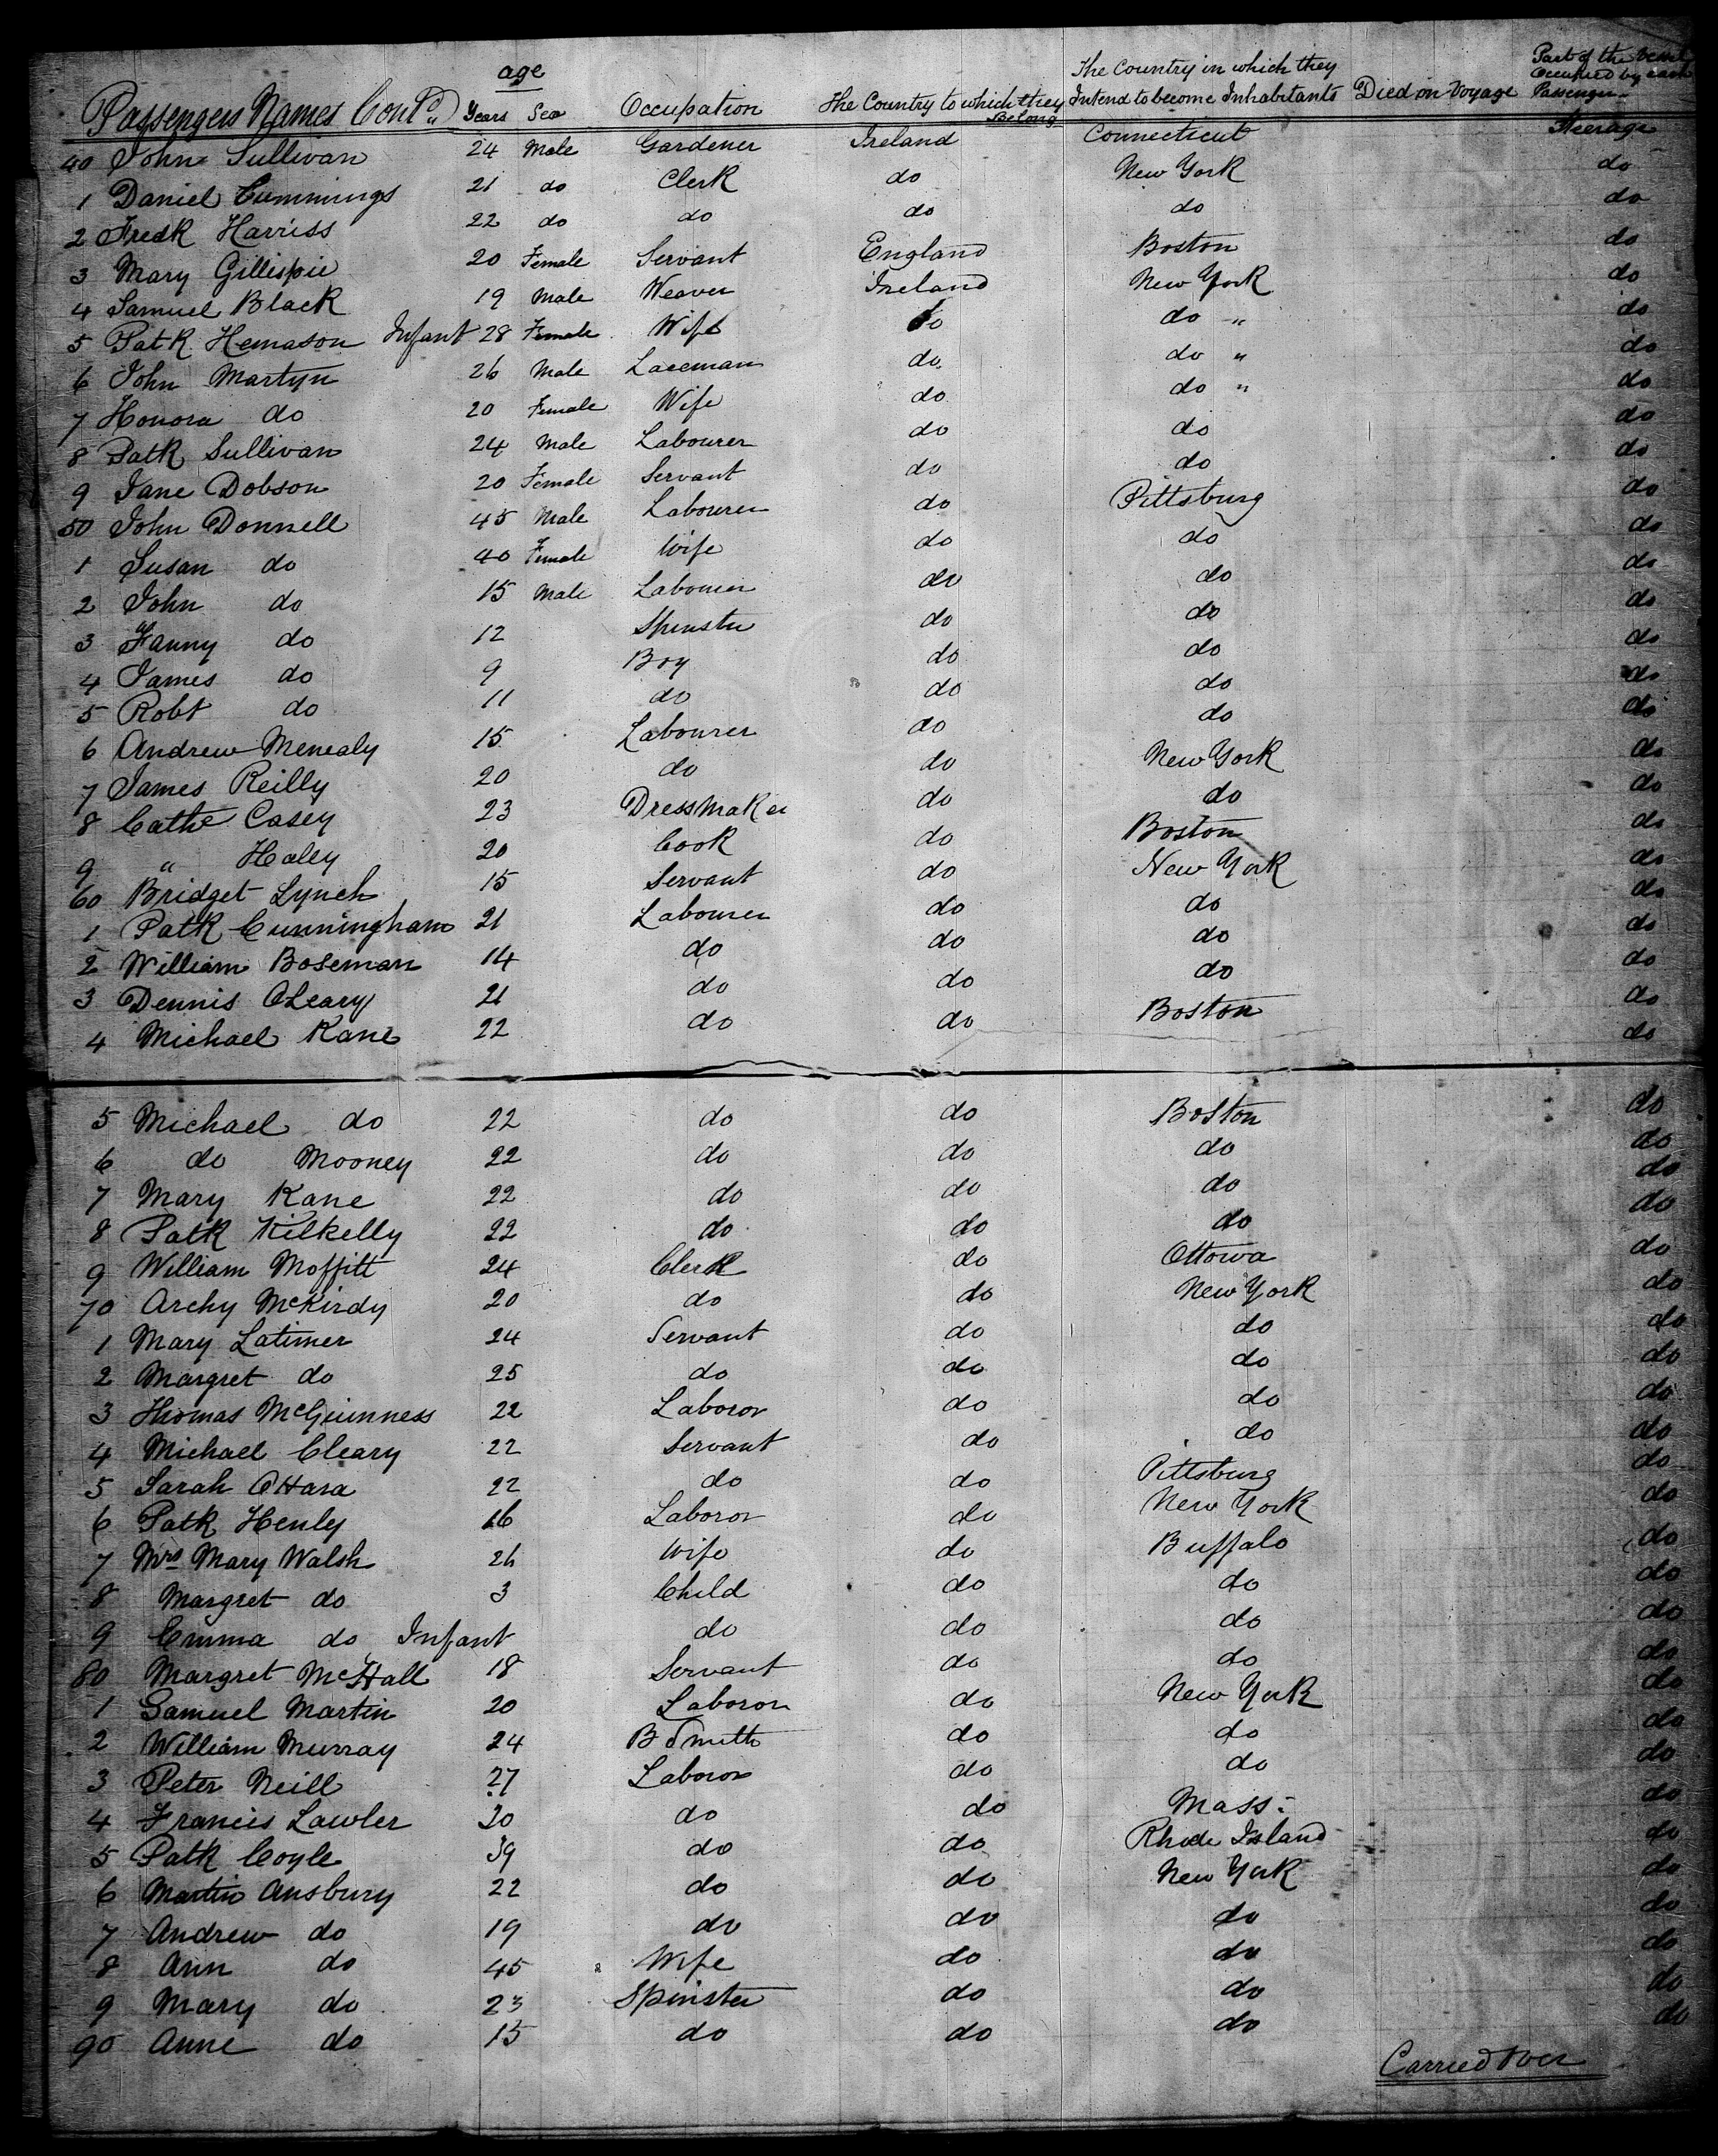 age
The Country in which they
Part of the Vessel
Occupied by each
Passengers Names Cont.d Years Sex Occupation The Country to which they Belong Intend to become Inhabitants Died on Voyage Passenger
40 John Sullivan 24 Male Gardener Ireland Connecticut Steerage
1 Daniel Cummings 21 do Clerk do New York do
2 Fredk Harriss 22 do do do do do
3 Mary Gillispie 20 Female Servant England Boston do
4 Samuel Black 19 Male Weaver Ireland New York do
5 Patk Hemason Infant 28 Female Wife do do " do
6 John Martyn 26 Male Laceman do do " do
7 Honora do 20 Female Wife do do " do
8 Patk Sullivan 24 Male Labourer do do do
9 Jane Dobson 20 Female Servant do do do
50 John Donnell 45 Male Labourer do Pittsburg do
1 Susan do 40 Female Wife do do do
2 John do 15 Male Labourer do do do
3 Fanny do 12 Spinster do do do
4 James do 9 Boy do do do
5 Robt do 11 do do do do
6 Andrew Menealy 15 Labourer do do do
7 James Reilly 20 do do New York do
8 Cathe Casey 23 Dressmaker do do do
9 " Haley 20 Cook do Boston do
60 Bridget Lynch 15 Servant do New York do
1 Patk Cunningham 21 Labourer do do do
2 William Boseman 14 do do do do
3 Dennis OLeary 21 do do do do
4 Michael Kane 22 do do Boston do
5 Michael do 22 do do Boston do
6 do Mooney 22 do do do do
7 Mary Kane 22 do do do do
8 Patk Kilkelly 22 do do do do
9 William Moffitt 24 Clerk do Ottowa do
70 Archy McKirdy 20 do do New York do
1 Mary Latimer 24 Servant do do do
2 Margret do 25 do do do do
3 Thomas McGuinness 22 Laboror do do do
4 Michael Cleary 22 Servant do do do
5 Sarah OHara 22 do do Pittsburg do
6 Patk Henly 16 Laboror do New York do
7 Mrs Mary Walsh 26 Wife do Buffalo do
8 Margret do 3 Child do do do
9 Emma do Infant do do do do
80 Margret McHall 18 Servant do do do
1 Samuel Martin 20 Laboror do New York do
2 William Murray 24 B Smith do do do
3 Peter Neill 27 Laboror do do do
4 Francis Lawler 30 do do Mass: do
5 Patk Coyle 39 do do Rhode Island do
6 Martin Ansbury 22 do do New York do
7 Andrew do 19 do do do do
8 Ann do 45 Wife do do do
9 Mary do 23 Spinster do do do
90 Anne do 15 do do do do
Carried Over